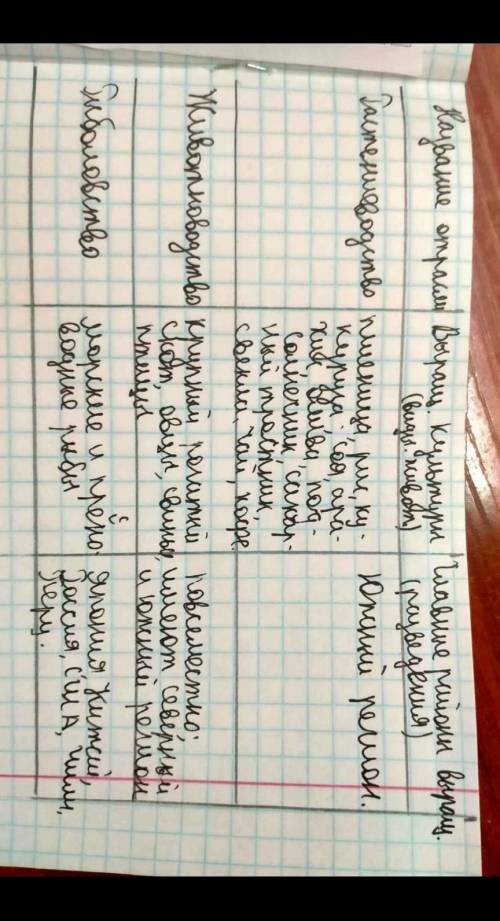 Название отрасли
Выращ. культуры
(виды живот)
Главные районы выращ.
(разведения)
Растениеводство
пшеница, рис, ку-
куруза, соя, ара-
хис, оливы, под-
солнечник, сахар-
ный тростник,
свекла, чай, кофе.
Южный регион.
Животноводство
крупный рогатый
скот, овцы, свиньи,
птицы
повсеместно:
имеют северный
и южный регион
Рыболовство
морские и пресно-
водные рыбы
Япония, Китай,
Россия, США, Чили,
Перу.